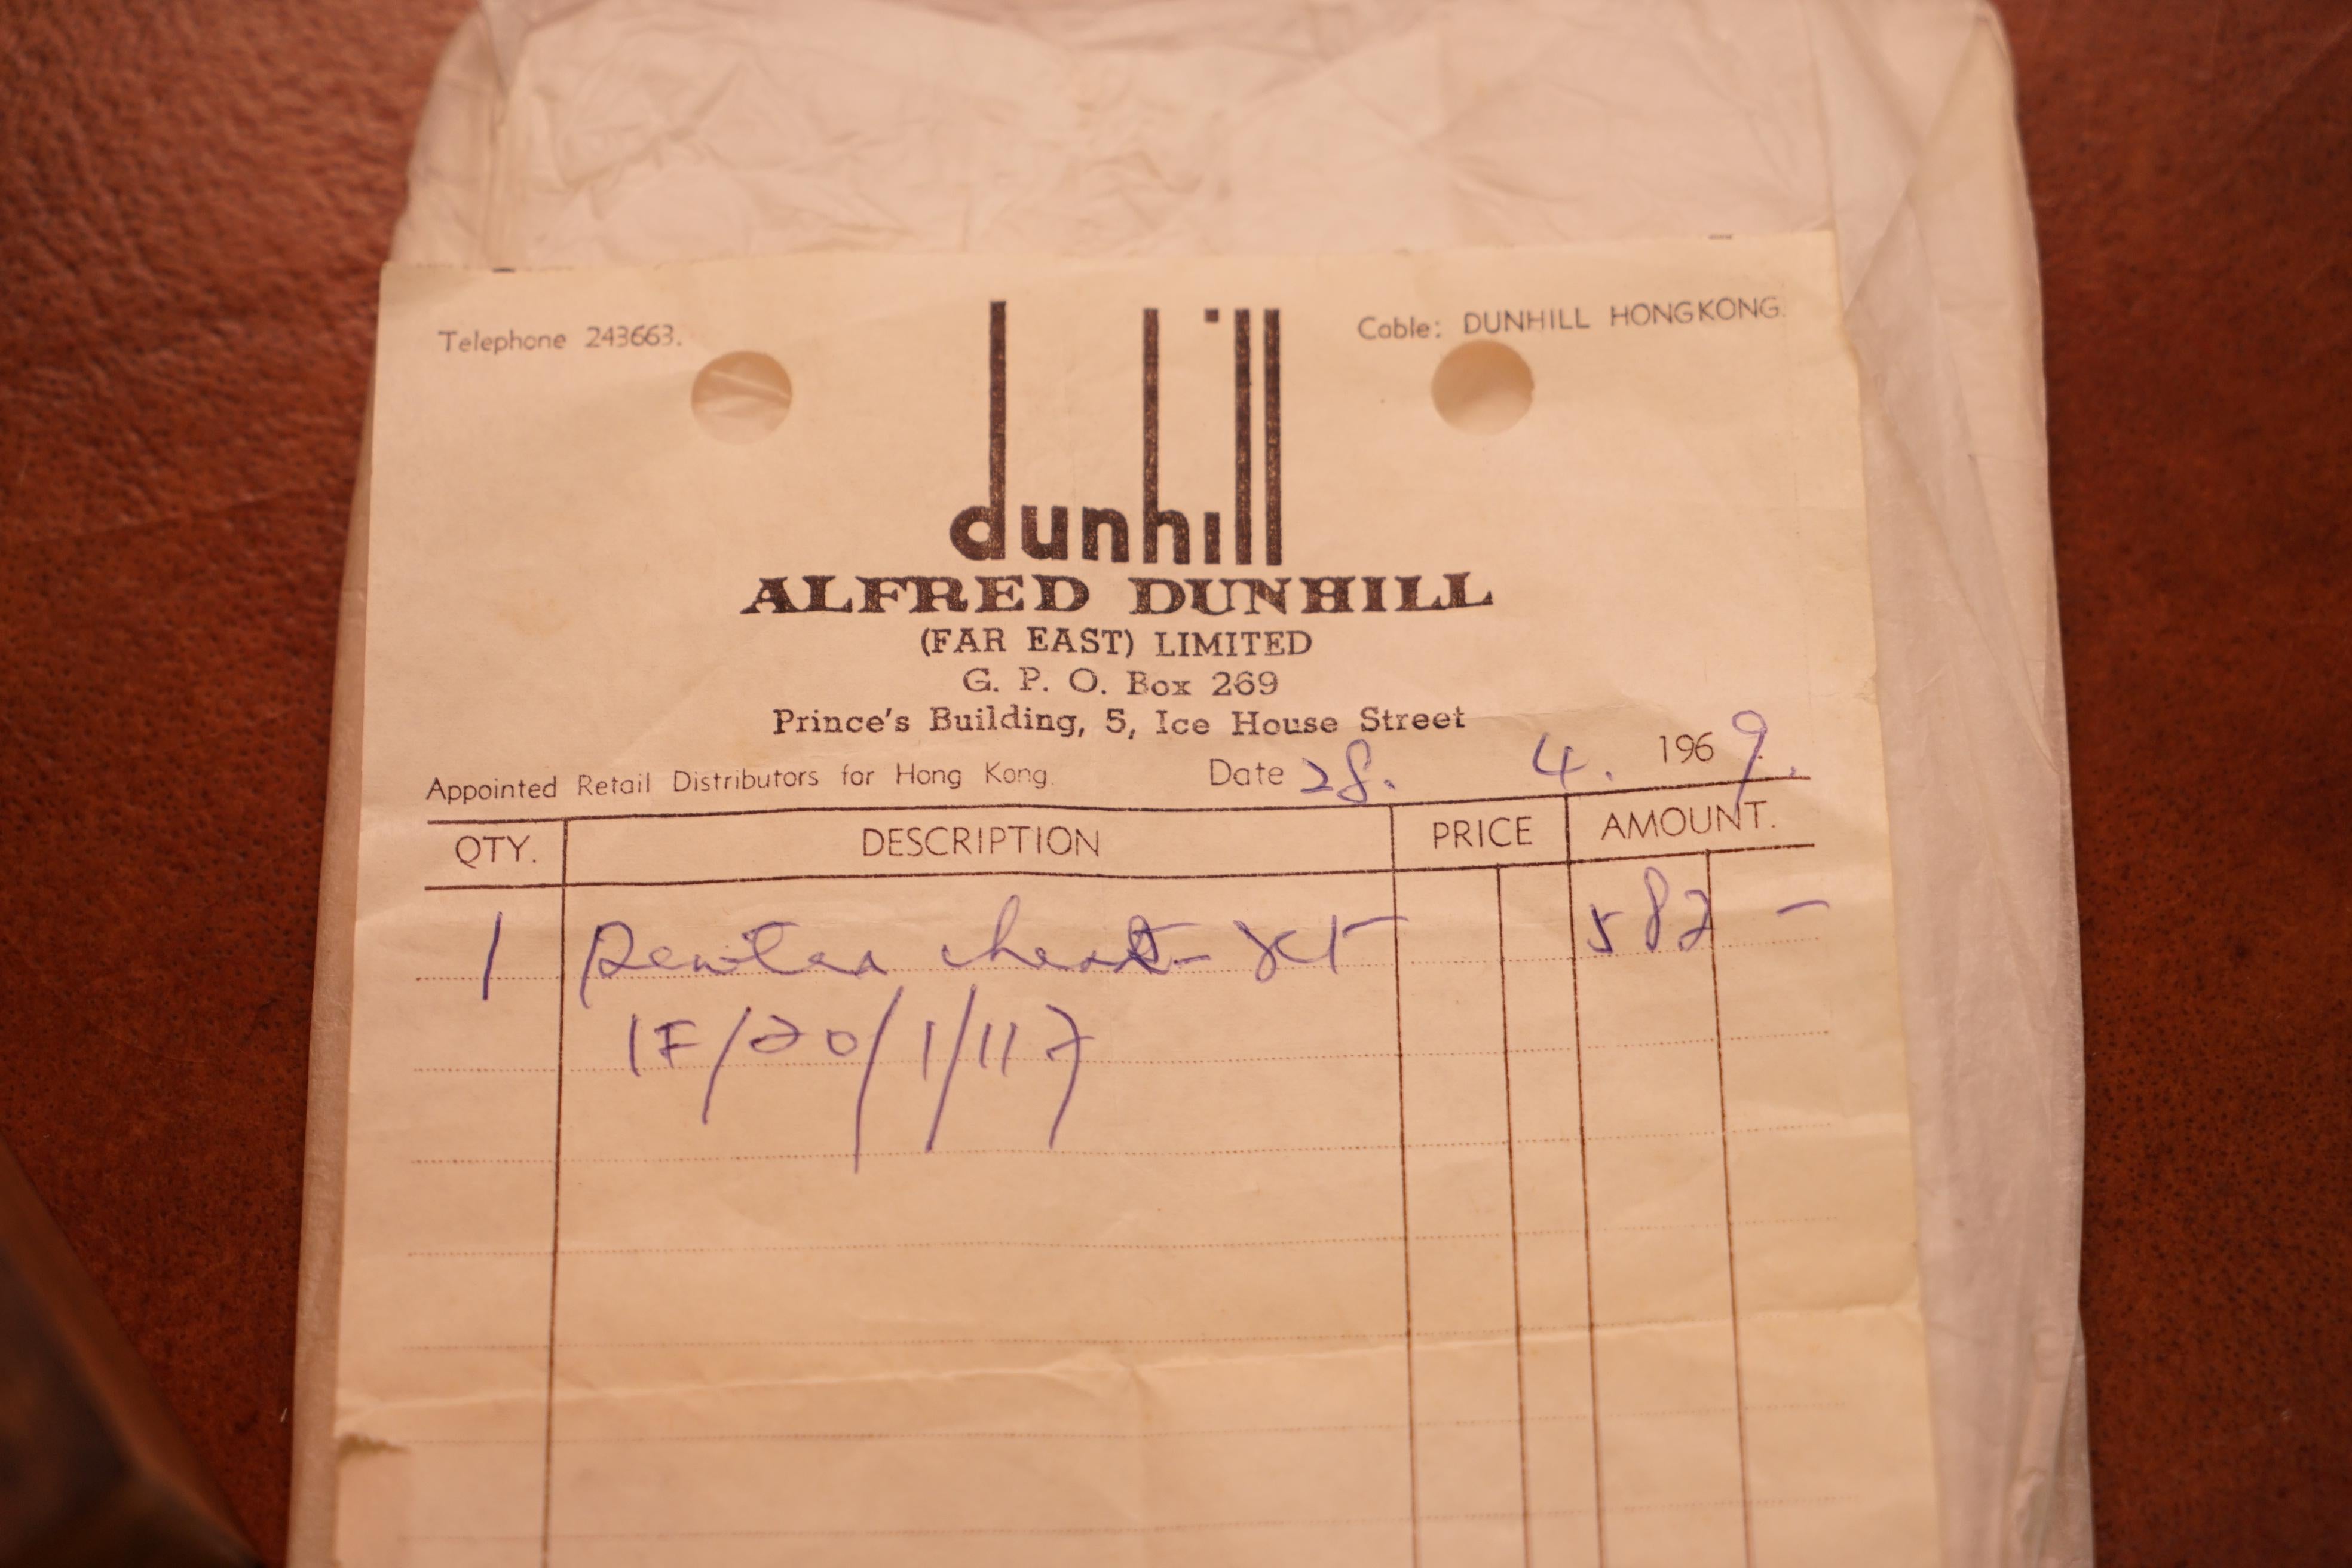 Telephone 243663.
Cable: DUNHILL HONGKONG.
dunhill
ALFRED DUNHILL
(FAR EAST) LIMITED
G. P. O. Box 269
Prince's Building, 5, Ice House Street
Appointed Retail Distributors for Hong Kong. Date 28. 4. 1969.
QTY. DESCRIPTION PRICE AMOUNT.
1 Pewter 582 -
1F/20/1/117